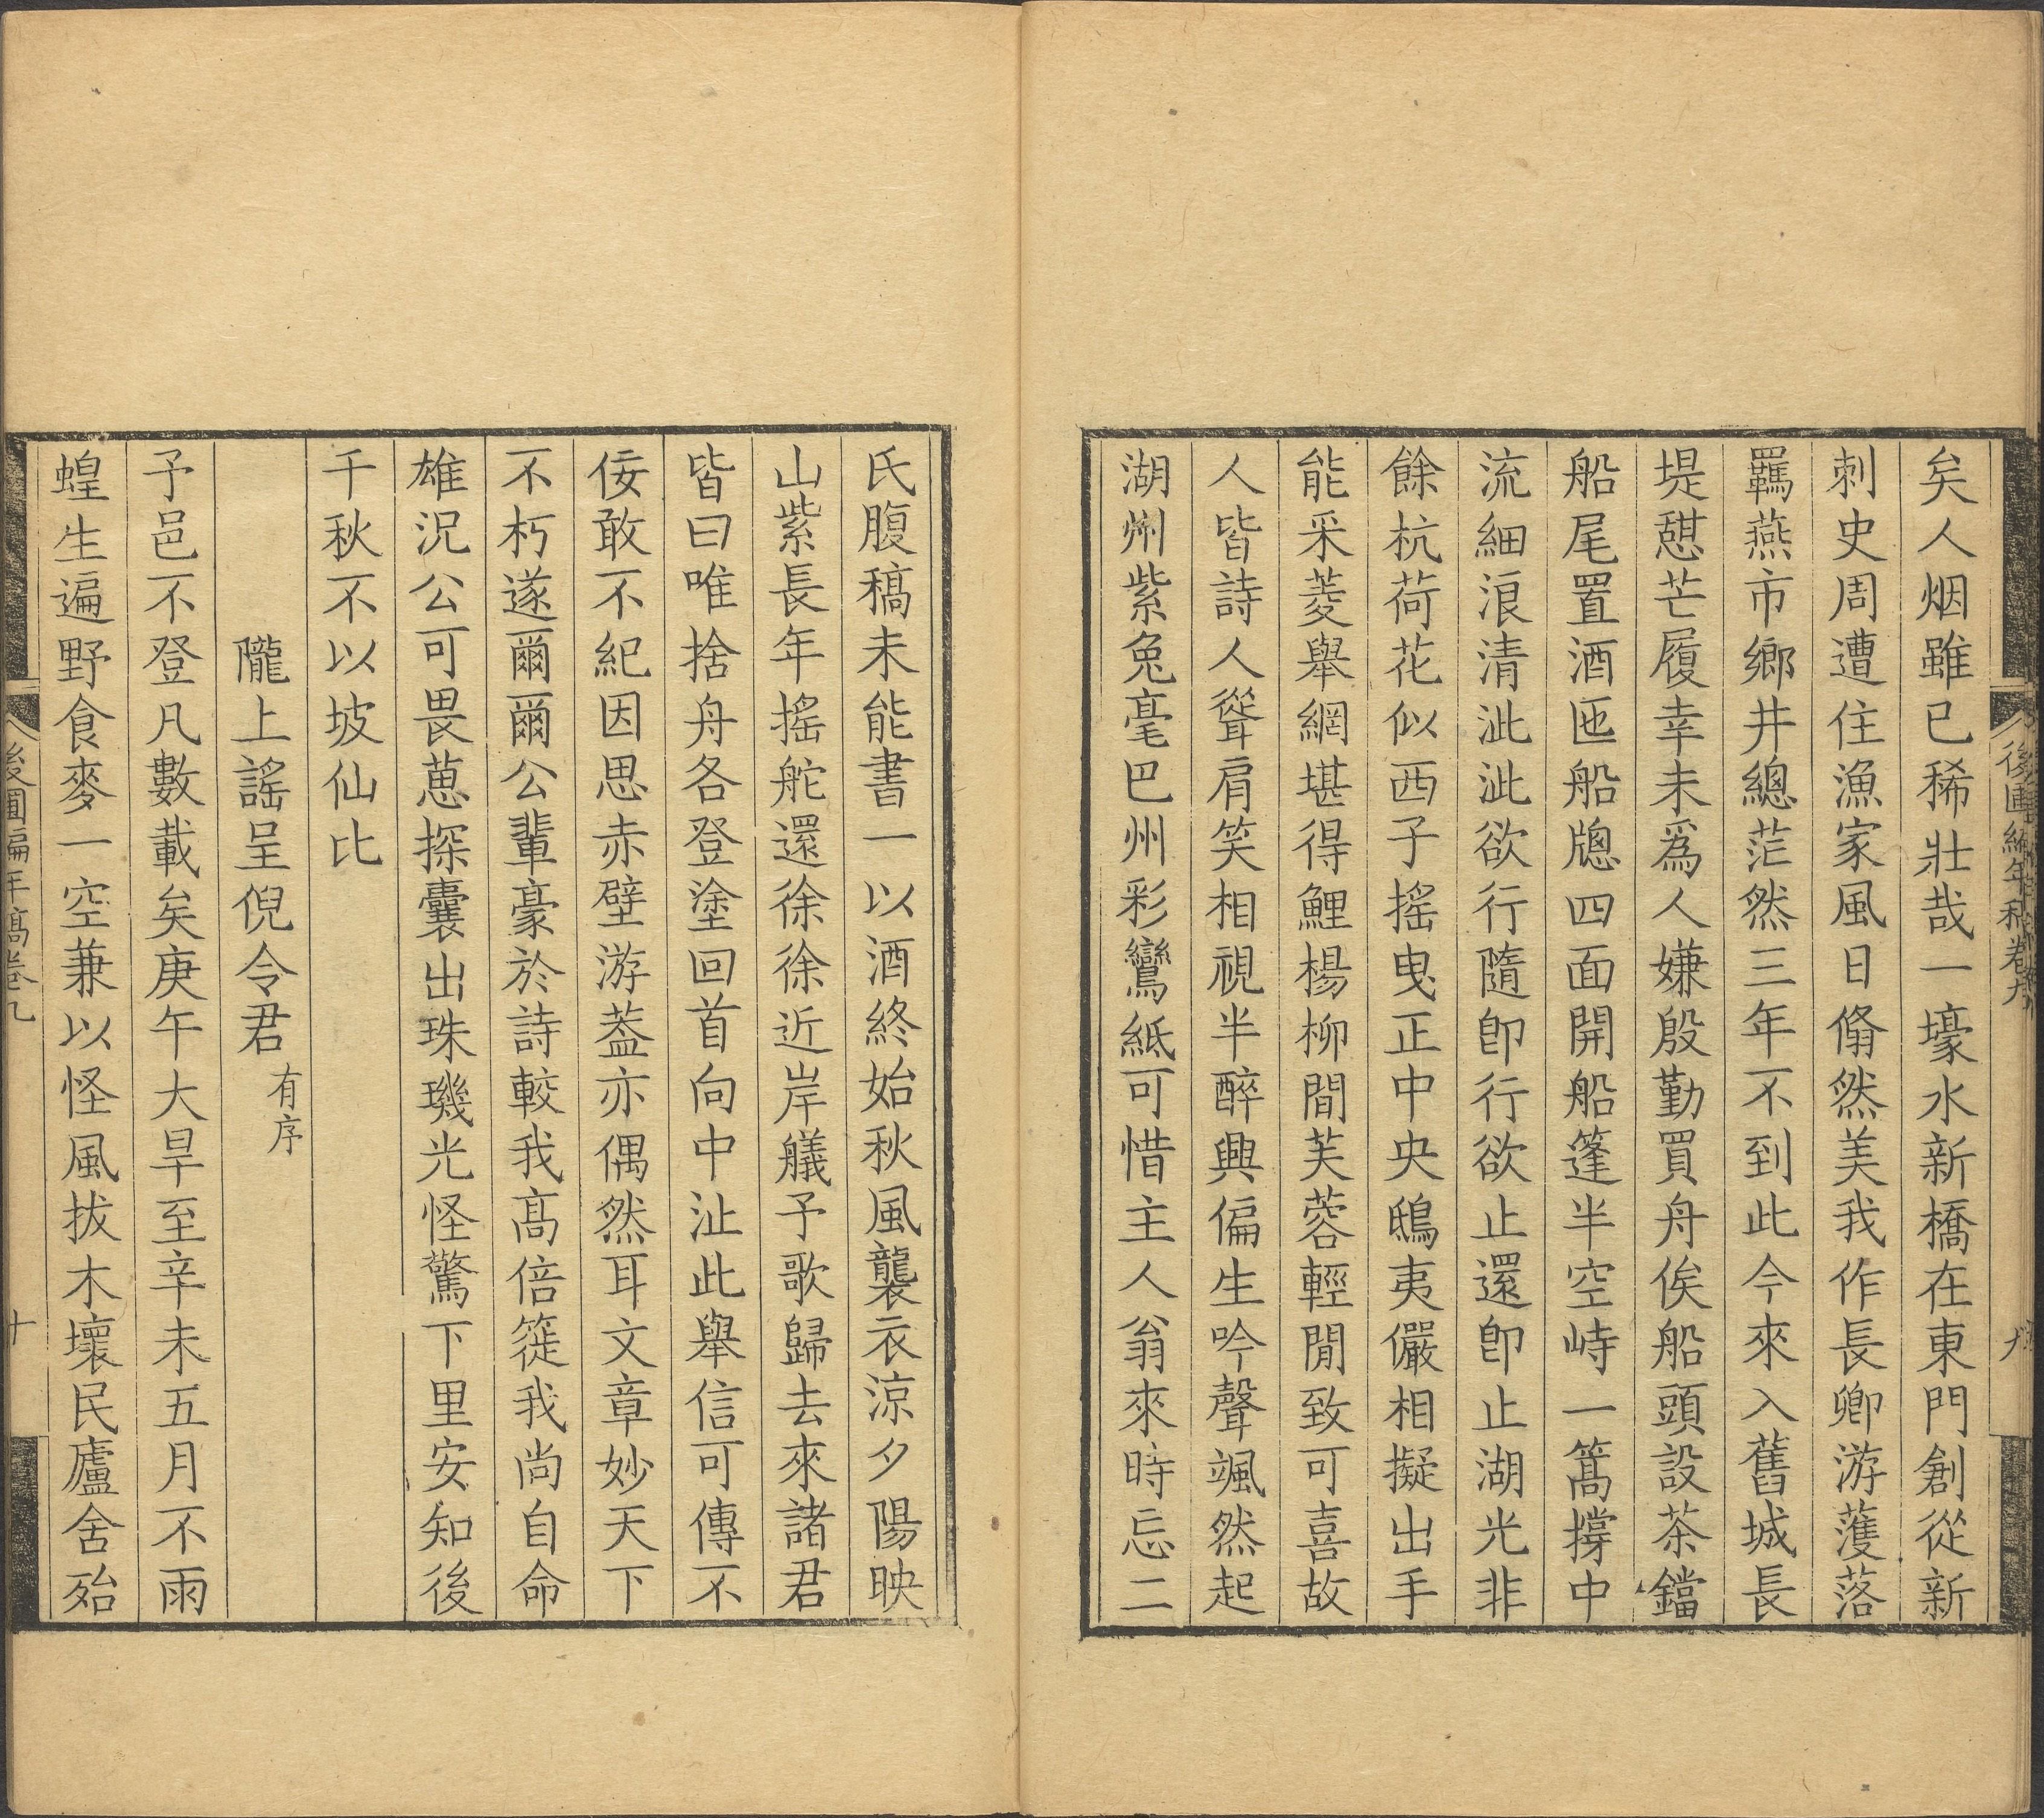 後圃編年稿卷九
九
矣人烟雖已稀壯哉一壕水新橋在東門創從新
刺史周遭住漁家風日翛然美我作長卿游蒦落
羈燕市鄉井總茫然三年不到此今來入舊城長
堤憇芒履幸未爲人嫌殷勤買舟俟船頭設茶鐺
船尾置酒匜船牕四面開船篷半空峙一篙撐中
流細浪清泚泚欲行隨卽行欲止還卽止湖光非
餘杭荷花似西子搖曳正中央鴟夷儼相擬出手
能采菱舉網堪得鯉楊柳間芙蓉輕閒致可喜故
人皆詩人聳肩笑相視半醉興偏生吟聲颯然起
湖州紫兔毫巴州彩鸞紙可惜主人翁來時忘二
氏腹稿未能書一以酒終始秋風襲衣涼夕陽映
山紫長年搖舵還徐徐近岸艤予歌歸去來諸君
皆曰唯捨舟各登塗回首向中沚此舉信可傳不
佞敢不紀因思赤壁游葢亦偶然耳文章妙天下
不朽遂爾爾公輩豪於詩較我高倍簁我尚自命
雄況公可畏葸探囊出珠璣光怪驚下里安知後
千秋不以坡仙比
隴上謠呈倪令君 有序
予邑不登凡數載矣庚午大旱至辛未五月不雨
蝗生遍野食麥一空兼以怪風拔木壞民廬舍殆
後圃編年稿卷九
十